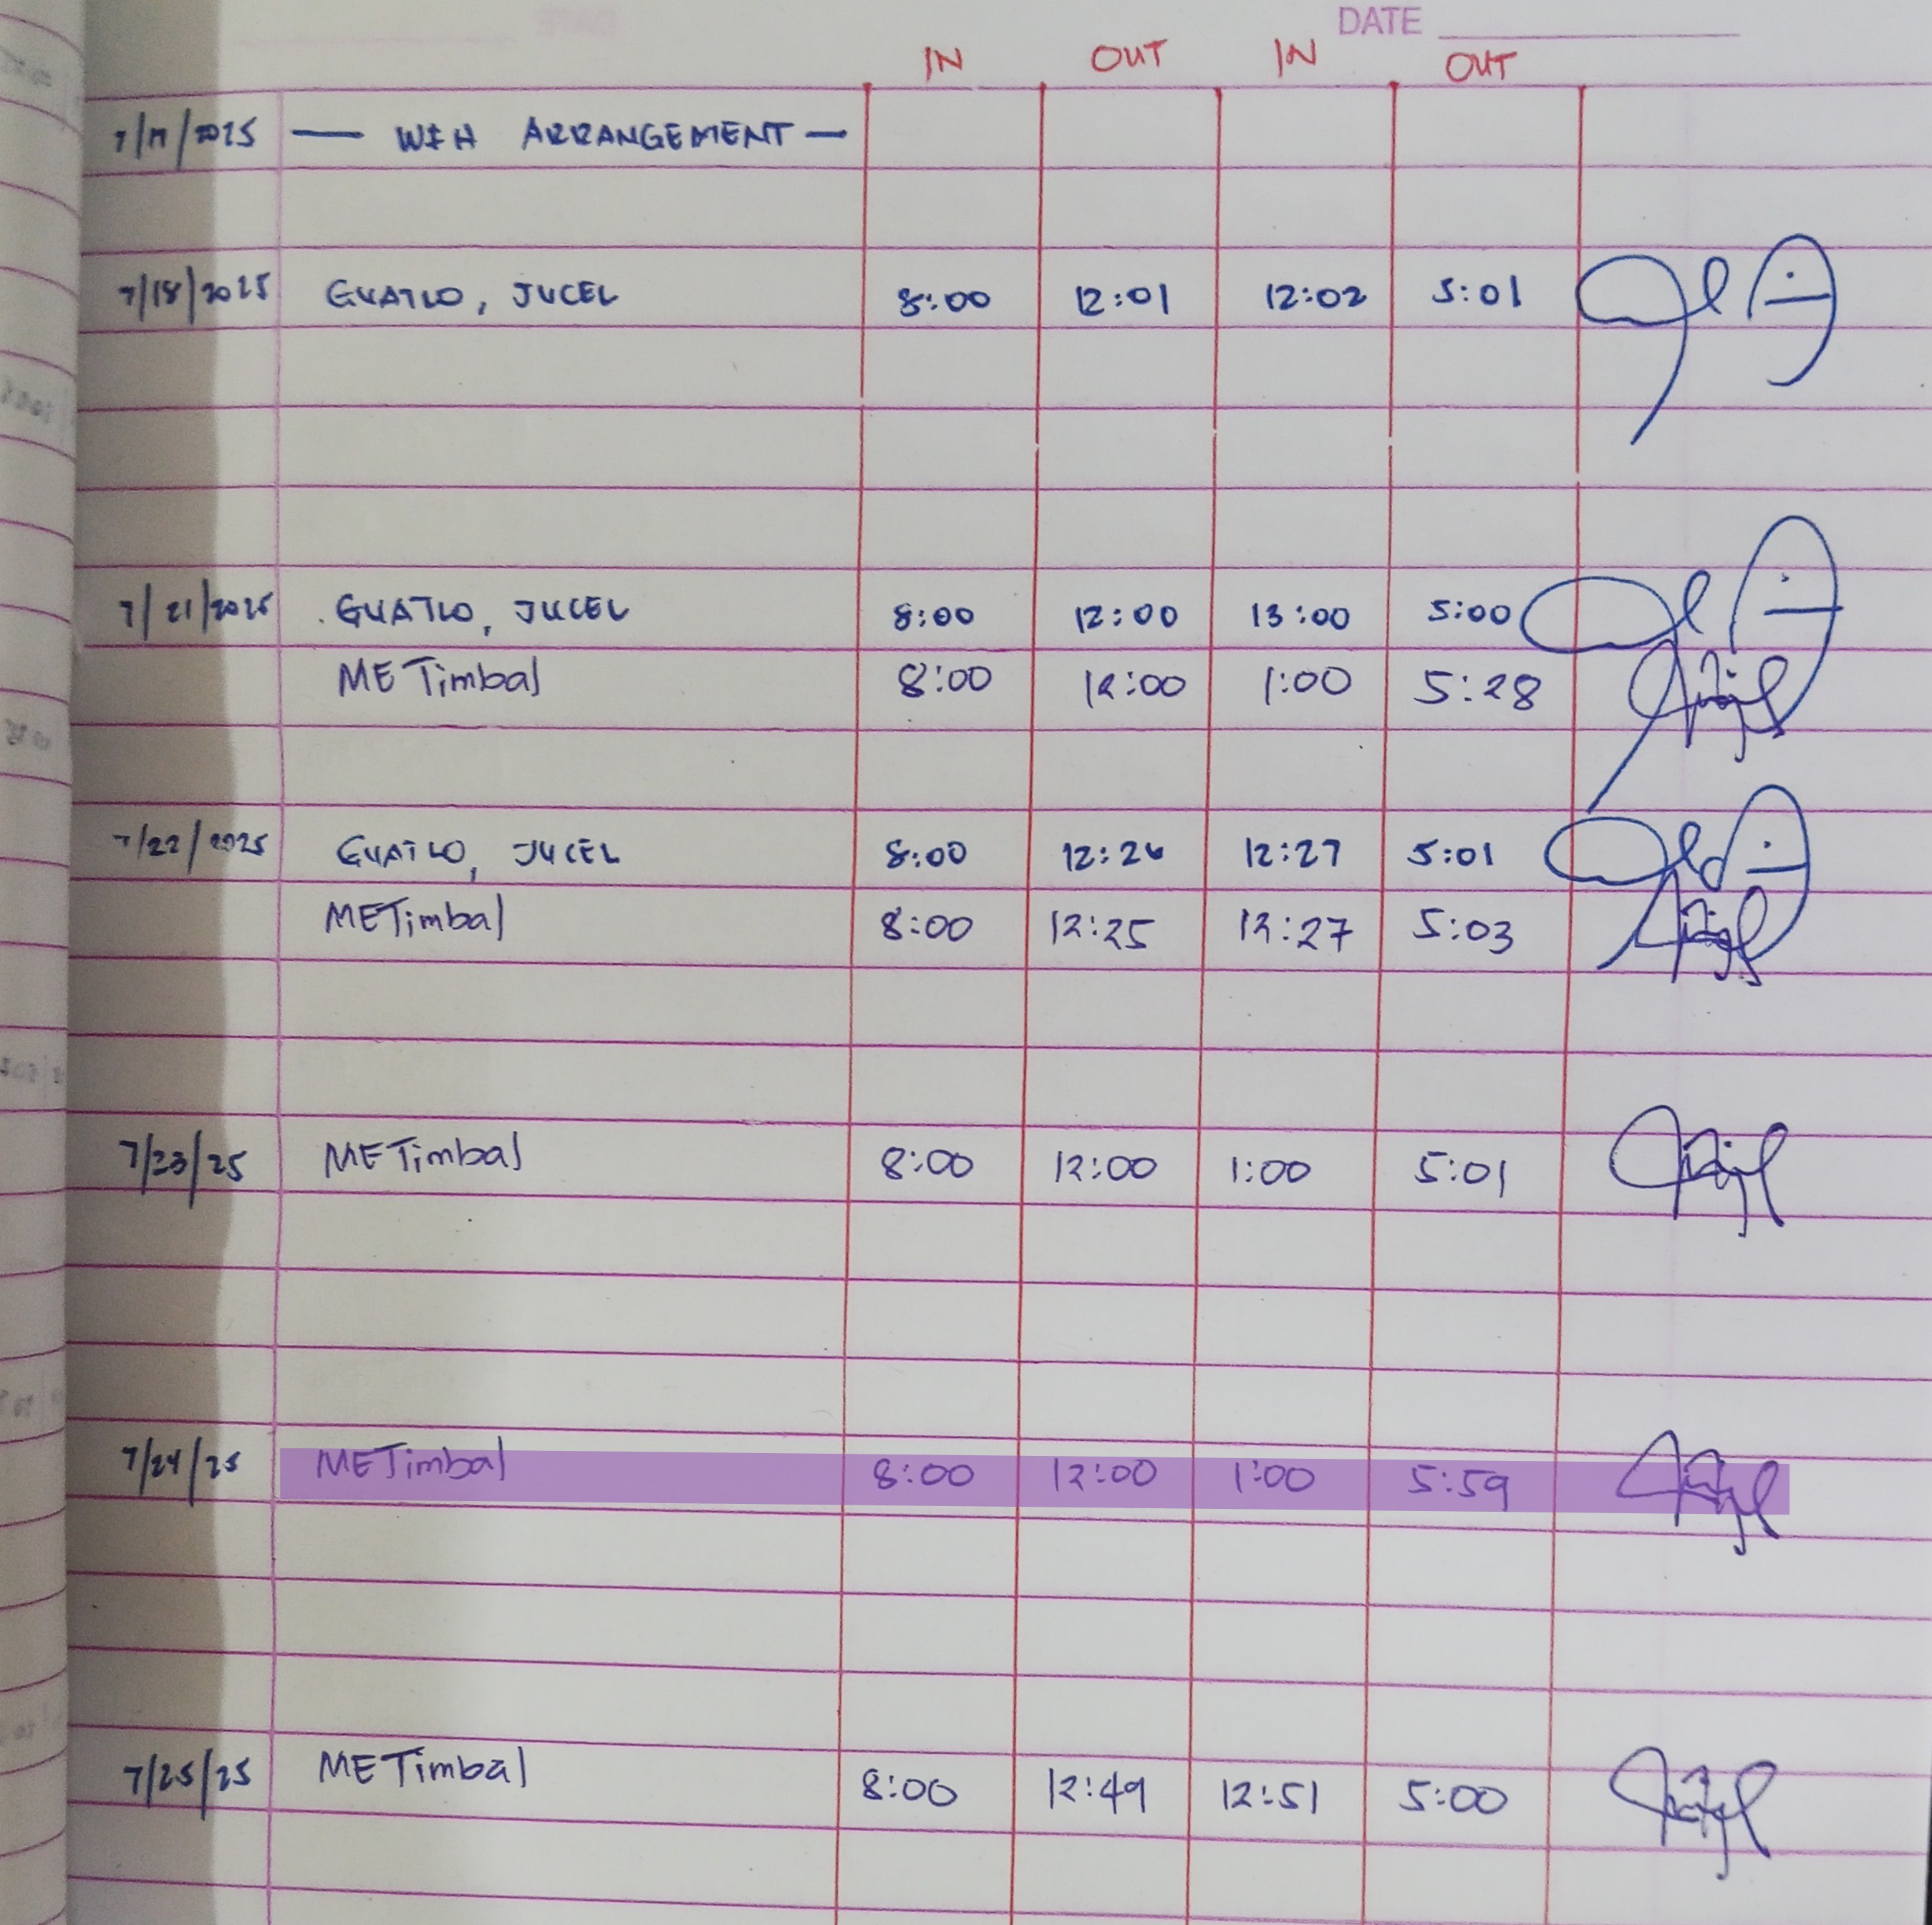 DATE
IN OUT IN OUT
7/17/2025 — WFH ARRANGEMENT —
7/18/2025 GUATLO, JUCEL 8:00 12:01 12:02 5:01
7/21/2025 GUATLO, JUCEL 8:00 12:00 13:00 5:00
METimbal 8:00 12:00 1:00 5:28
7/22/2025 GUATLO, JUCEL 8:00 12:26 12:27 5:01
METimbal 8:00 12:25 12:27 5:03
7/23/25 METimbal 8:00 12:00 1:00 5:01
7/24/25 METimbal 8:00 12:00 1:00 5:59
7/25/25 METimbal 8:00 12:49 12:51 5:00